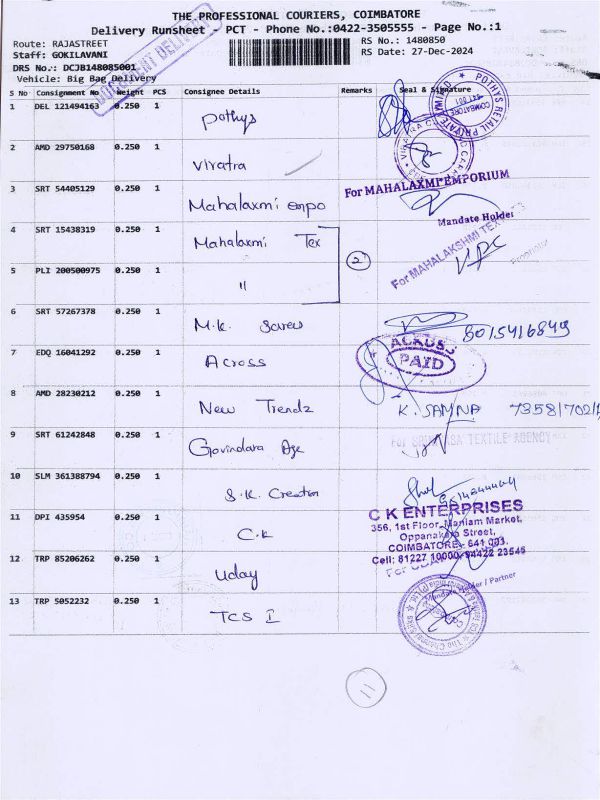 THE PROFESSIONAL COURIERS, COIMBATORE
Delivery Runsheet - PCT - Phone No.:0422-3505555 - Page No.:1
Route: RAJASTREET
RS No.: 1480850
Staff: GOKILAVANI
RS Date: 27-Dec-2024
DRS No.: DCJB148085001
Vehicle: Big Bag Delivery
DOCUMENT DELIVERY
S No Consignment No Weight PCS Consignee Details Remarks Seal & Signature
1 DEL 121494163 0.250 1 Pothys
POTHYS RETAIL PRIVATE LIMITED
COIMBATORE 641 001
2 AMD 29750168 0.250 1 Viratra
For MAHALAXMI EMPORIUM
3 SRT 54405129 0.250 1 Mahalaxmi empo
Mandate Holder
4 SRT 15438319 0.250 1 Mahalaxmi Tex
2
For MAHALAKSHMI TEXTILES
5 PLI 200500975 0.250 1 "
6 SRT 57267378 0.250 1 M.K. Screw
7 EDQ 16041292 0.250 1 Across
ACROSS
PAID
8 AMD 28230212 0.250 1 New Trendz K. SAMNA
9 SRT 61242848 0.250 1 Govindara Age
TEXTILE AGENCY
10 SLM 361388794 0.250 1 S.K. Creation
11 DPI 435954 0.250 1 C.K
C K ENTERPRISES
356, 1st Floor, Maniam Market,
Street,
COIMBATORE- 641 003.
Cell: 81227 10000, 94422 23545
12 TRP 85206262 0.250 1 Uday
Mandate Holder / Partner
13 TRP 5052232 0.250 1 TCS I
11